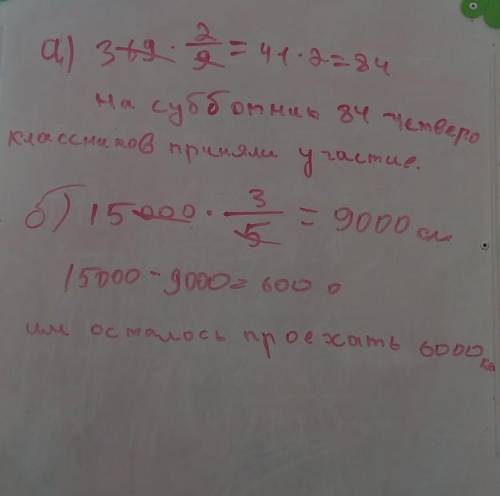 а) 369 · 2/9 = 41 · 2 = 84
на субботник 84 четверо
классников приняли участие.
б) 15000 · 3/5 = 9000 см
15000 - 9000 = 6000
им осталось проехать 6000 км